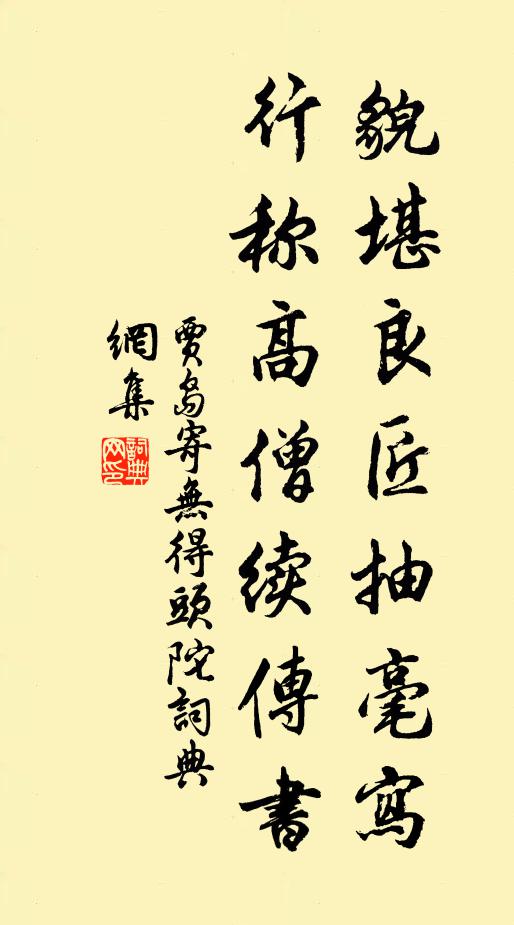 貌堪良匠抽毫寫
行称高僧续傳書
賈島寄無得頭陀詞典
網集
詞典網印